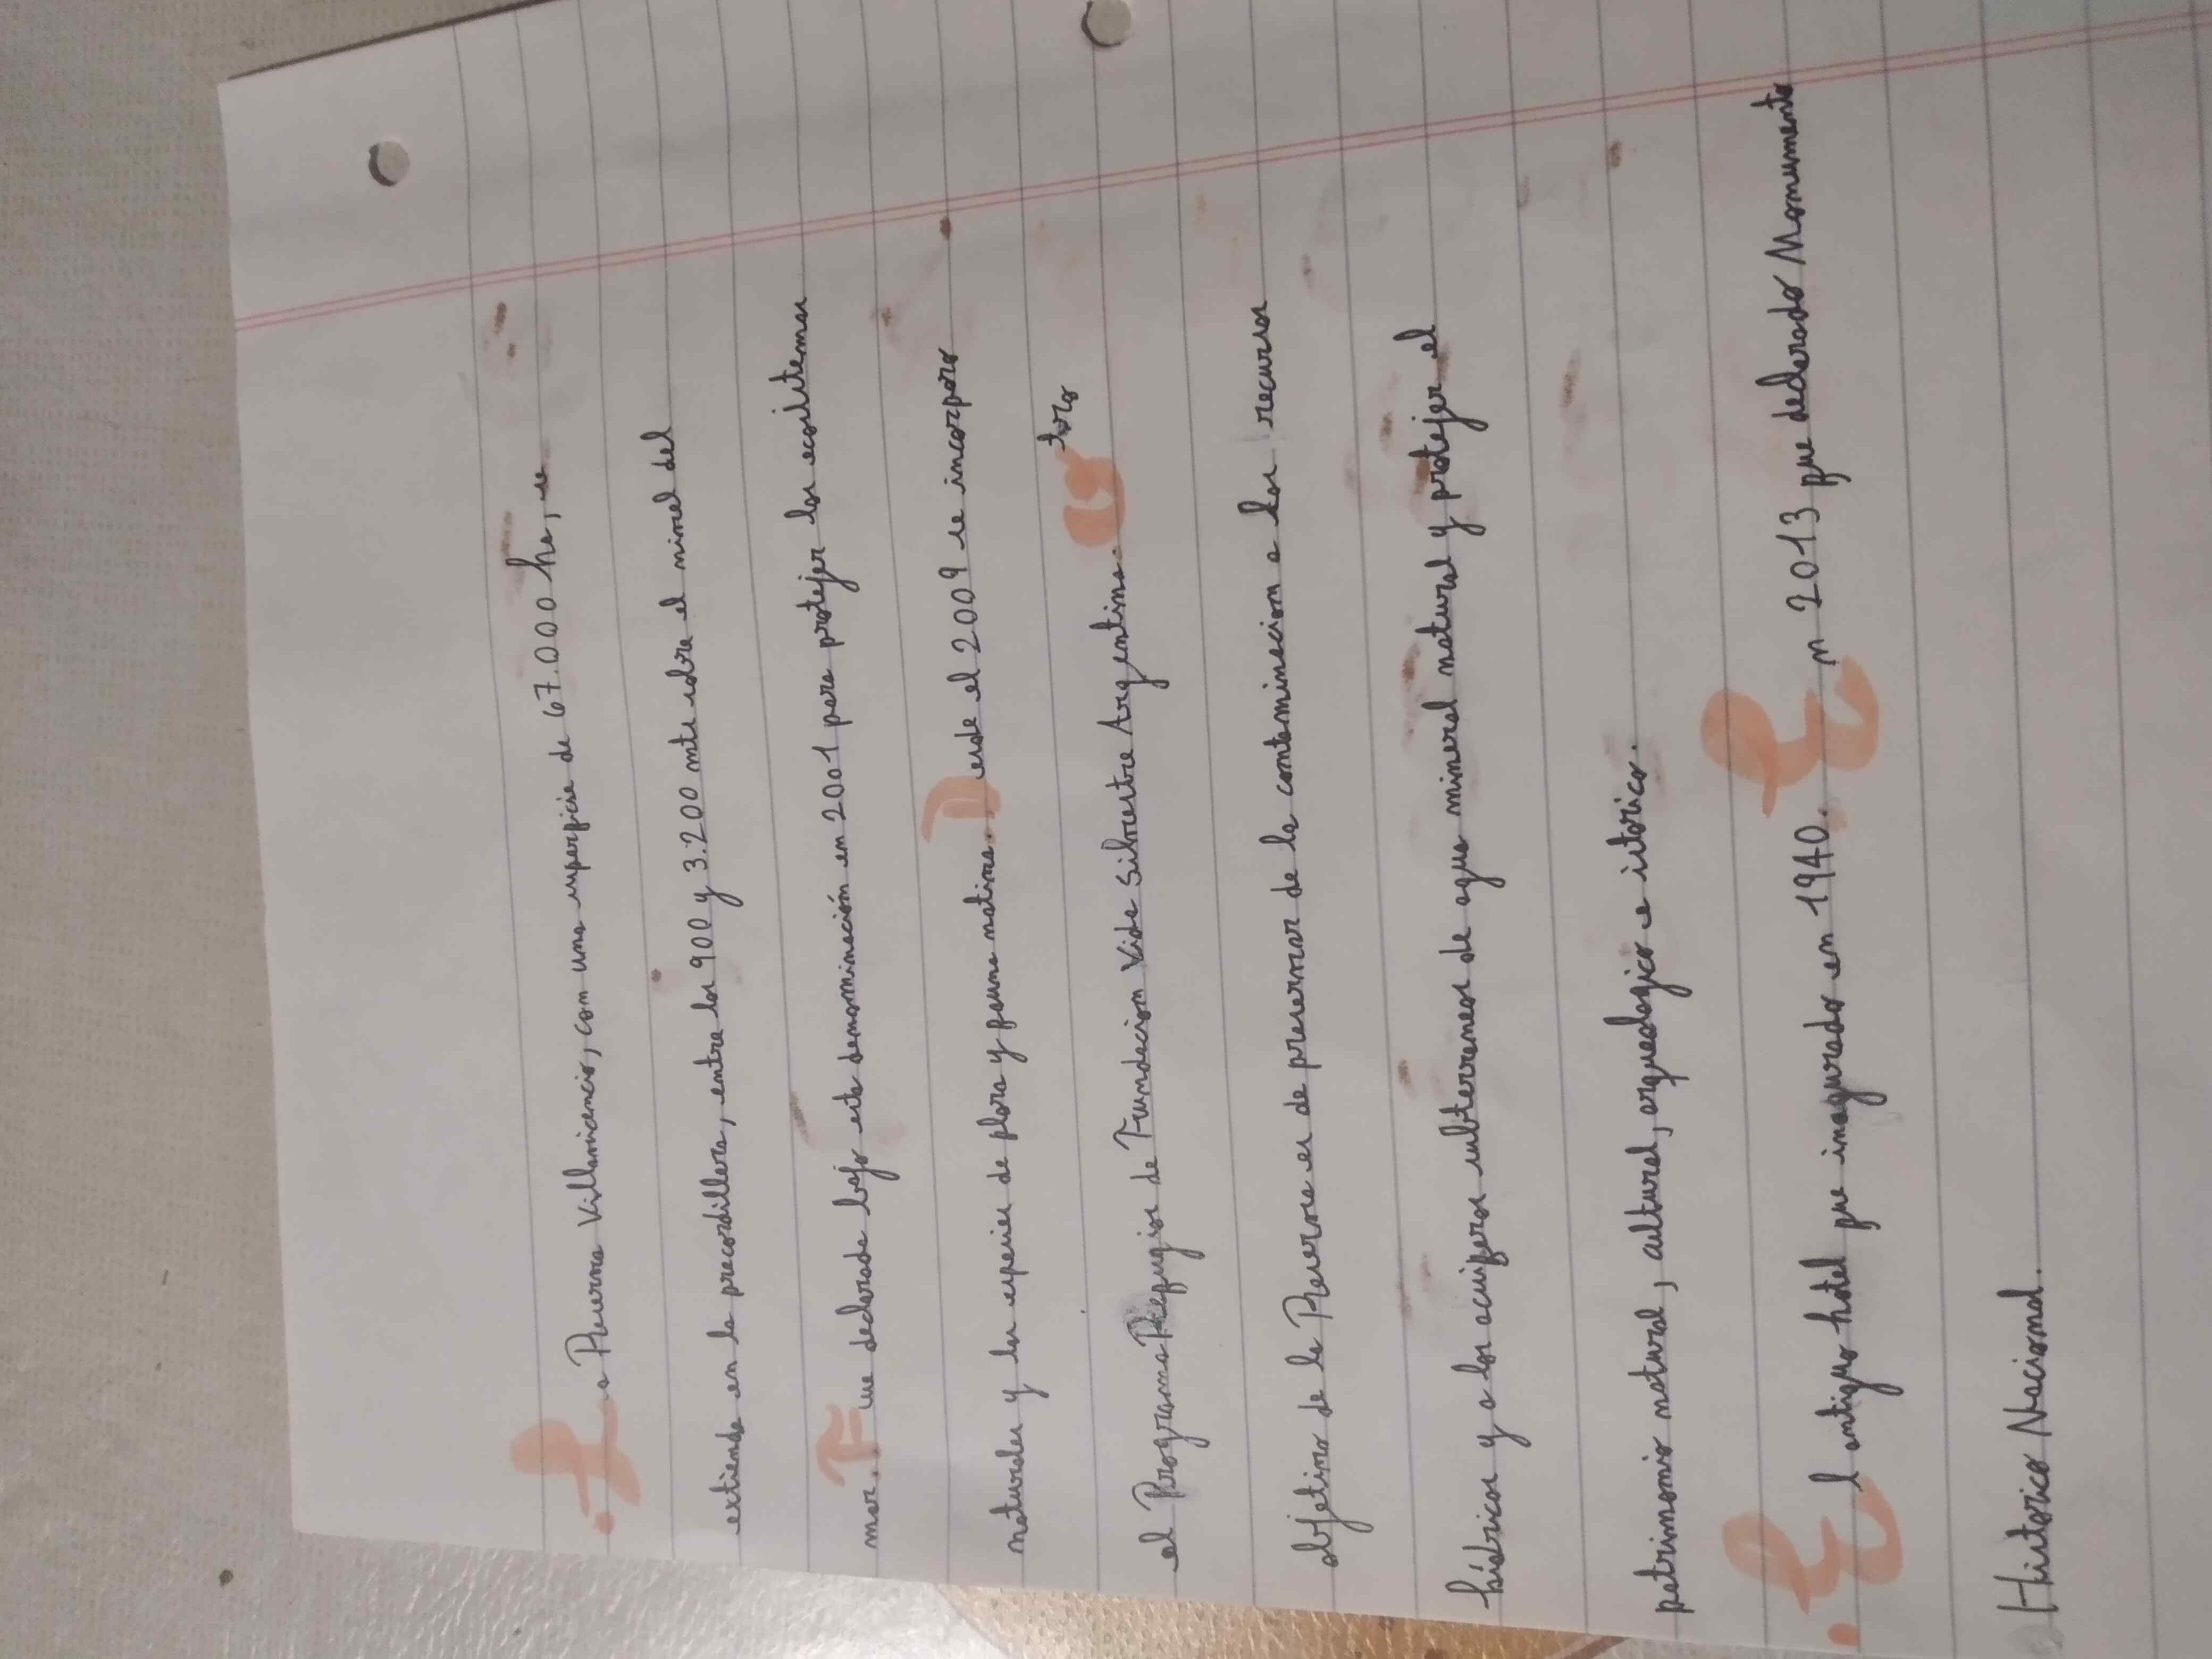 . La Reserva Villavicencio, con una superficie de 67.000 ha, se
extiende en la precordillera, entre los 900 y 3.200 mts sobre el nivel del
mar. Fue declarada bajo esta denominación en 2001 para protejer los ecositemas
naturales y las especies de flora y fauna nativa. Desde el 2009 se incorporo
el Programa Refugios de Fundacion Vida Silvestre Argentina. Otro
objetivo de la Reserva es de preservar de la contaminacion a los recursos
hídricos y a los acuiferos subterraneos de agua mineral natural y protejer el
patrimonio natural, cultural, arqueologico e istorico.
. El antiguo hotel fue inagurado en 1940. En 2013 fue declarado Monumento
Historico Nacional.